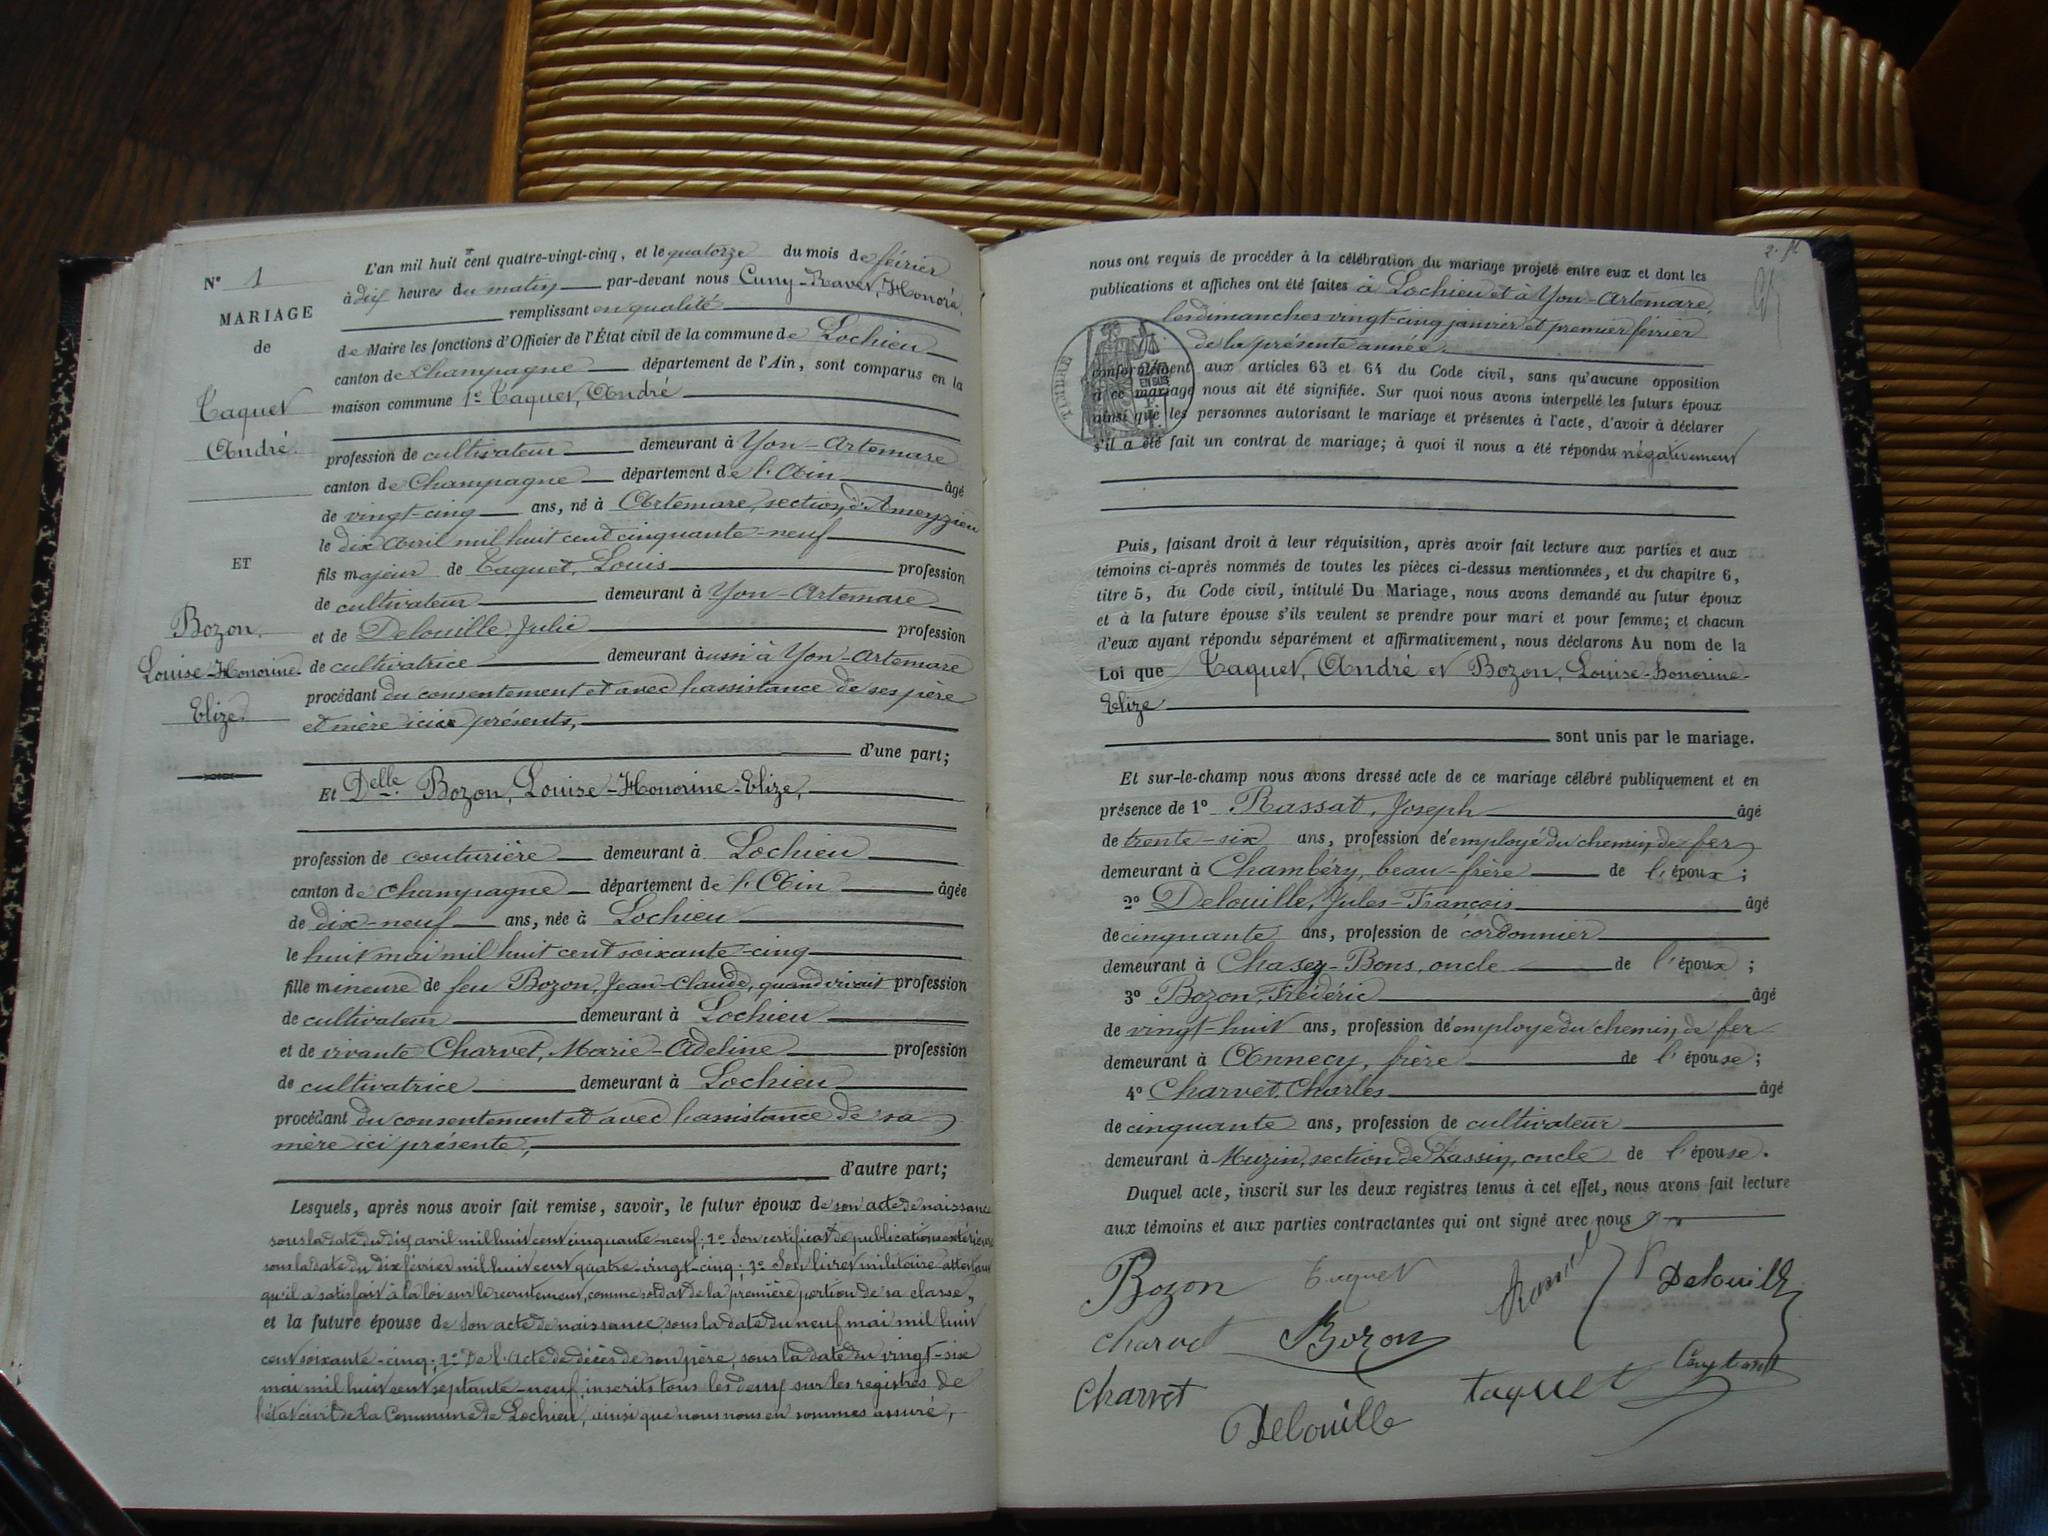 N° 1
MARIAGE
de
Taquet
André.
ET
Bozon,
Louise-Honorine-
Elize.
L'an mil huit cent quatre-vingt-cinq, et le quatorze du mois de février
à dix heures du matin par-devant nous Cuny-Ravet, Honoré,
remplissant en qualité
de Maire les fonctions d'Officier de l'État civil de la commune de Lochieu
canton de Champagne département de l'Ain, sont comparus en la
maison commune 1° Taquet, André
profession de cultivateur demeurant à Yon-Artemare
canton de Champagne département de l'Ain âgé
de vingt-cinq ans, né à Artemare, section d'Ameyzieu
le dix Avril mil huit cent cinquante-neuf
fils majeur de Taquet, Louis profession
de cultivateur demeurant à Yon-Artemare
et de Delouille, Julie profession
de cultivatrice demeurant aussi à Yon-Artemare
procédant du consentement et avec l'assistance de ses père
et mère ici présents,
d'une part;
Et Delle Bozon, Louise-Honorine-Elize,
profession de couturière demeurant à Lochieu
canton de Champagne département de l'Ain âgée
de dix-neuf ans, née à Lochieu
le huit mai mil huit cent soixante-cinq
fille mineure de feu Bozon, Jean-Claude, quand vivait profession
de cultivateur demeurant à Lochieu
et de vivante Charvet, Marie-Adeline profession
de cultivatrice demeurant à Lochieu
procédant du consentement et avec l'assistance de sa
mère ici présente,
d'autre part;
Lesquels, après nous avoir fait remise, savoir, le futur époux de son acte de naissance
sous la date du dix avril mil huit cent cinquante-neuf; 2° Son certificat de publications extérieures
sous la date du dix février mil huit cent quatre-vingt-cinq; 3° Son livret militaire attestant
qu'il a satisfait à la loi sur le recrutement, comme soldat de la première portion de sa classe,
et la future épouse de son acte de naissance, sous la date du neuf mai mil huit
cent soixante-cinq; 2° De l'Acte de décès de son père, sous la date du vingt-six
mai mil huit cent septante-neuf, inscrits tous les deux sur les registres de
l'état civil de la Commune de Lochieu, ainsi que nous nous en sommes assuré,
nous ont requis de procéder à la célébration du mariage projeté entre eux et dont les
publications et affiches ont été faites à Lochieu et à Yon-Artemare,
les dimanches vingt-cinq janvier et premier février
de la présente année.
TIMBRE
conformément aux articles 63 et 64 du Code civil, sans qu'aucune opposition
à ce mariage nous ait été signifiée. Sur quoi nous avons interpellé les futurs époux
ainsi que les personnes autorisant le mariage et présentes à l'acte, d'avoir à déclarer
s'il a été fait un contrat de mariage; à quoi il nous a été répondu négativement
Puis, faisant droit à leur réquisition, après avoir fait lecture aux parties et aux
témoins ci-après nommés de toutes les pièces ci-dessus mentionnées, et du chapitre 6,
titre 5, du Code civil, intitulé Du Mariage, nous avons demandé au futur époux
et à la future épouse s'ils veulent se prendre pour mari et pour femme; et chacun
d'eux ayant répondu séparément et affirmativement, nous déclarons Au nom de la
Loi que Taquet, André et Bozon, Louise-Honorine-
Elize
sont unis par le mariage.
Et sur-le-champ nous avons dressé acte de ce mariage célébré publiquement et en
présence de 1° Rassat, Joseph âgé
de trente-six ans, profession d'employé du chemin de fer
demeurant à Chambéry, beau-frère de l'époux;
2° Delouille, Jules-François âgé
de cinquante ans, profession de cordonnier
demeurant à Chasey-Bons, oncle de l'époux;
3° Bozon, Frédéric âgé
de vingt-huit ans, profession d'employé du chemin de fer
demeurant à Annecy, frère de l'épouse;
4° Charvet, Charles âgé
de cinquante ans, profession de cultivateur
demeurant à Muzin, section de Zassin, oncle de l'épouse.
Duquel acte, inscrit sur les deux registres tenus à cet effet, nous avons fait lecture
aux témoins et aux parties contractantes qui ont signé avec nous
Bozon Taquet Delouille
Charvet Bozon
Charvet Taquet
Delouille